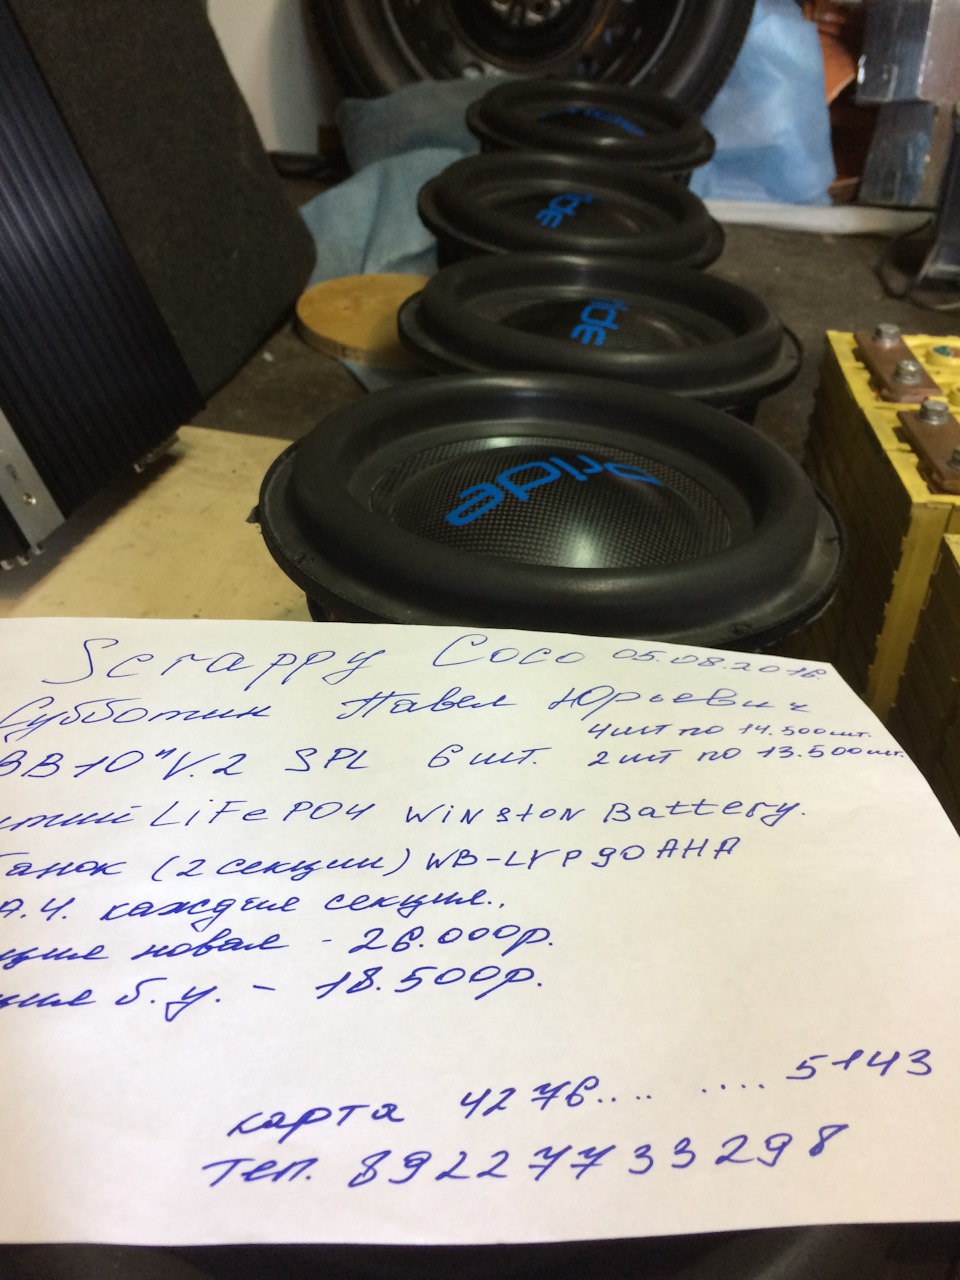 pride
ide
pride
Scrappy Coco 05.08.2016.
Субботин Павел Юрьевич
4шт по 14.500шт.
BB10"V.2 SPL 6шт. 2шт по 13.500шт.
LiFePO4 WiNstoN Battery.
(2 секции) WB-LYP90AHA
А.Ч. каждая секция.
новая - 26.000р.
б.у. - 18.500р.
карта 4276.... .... 5143
тел. 89227733298